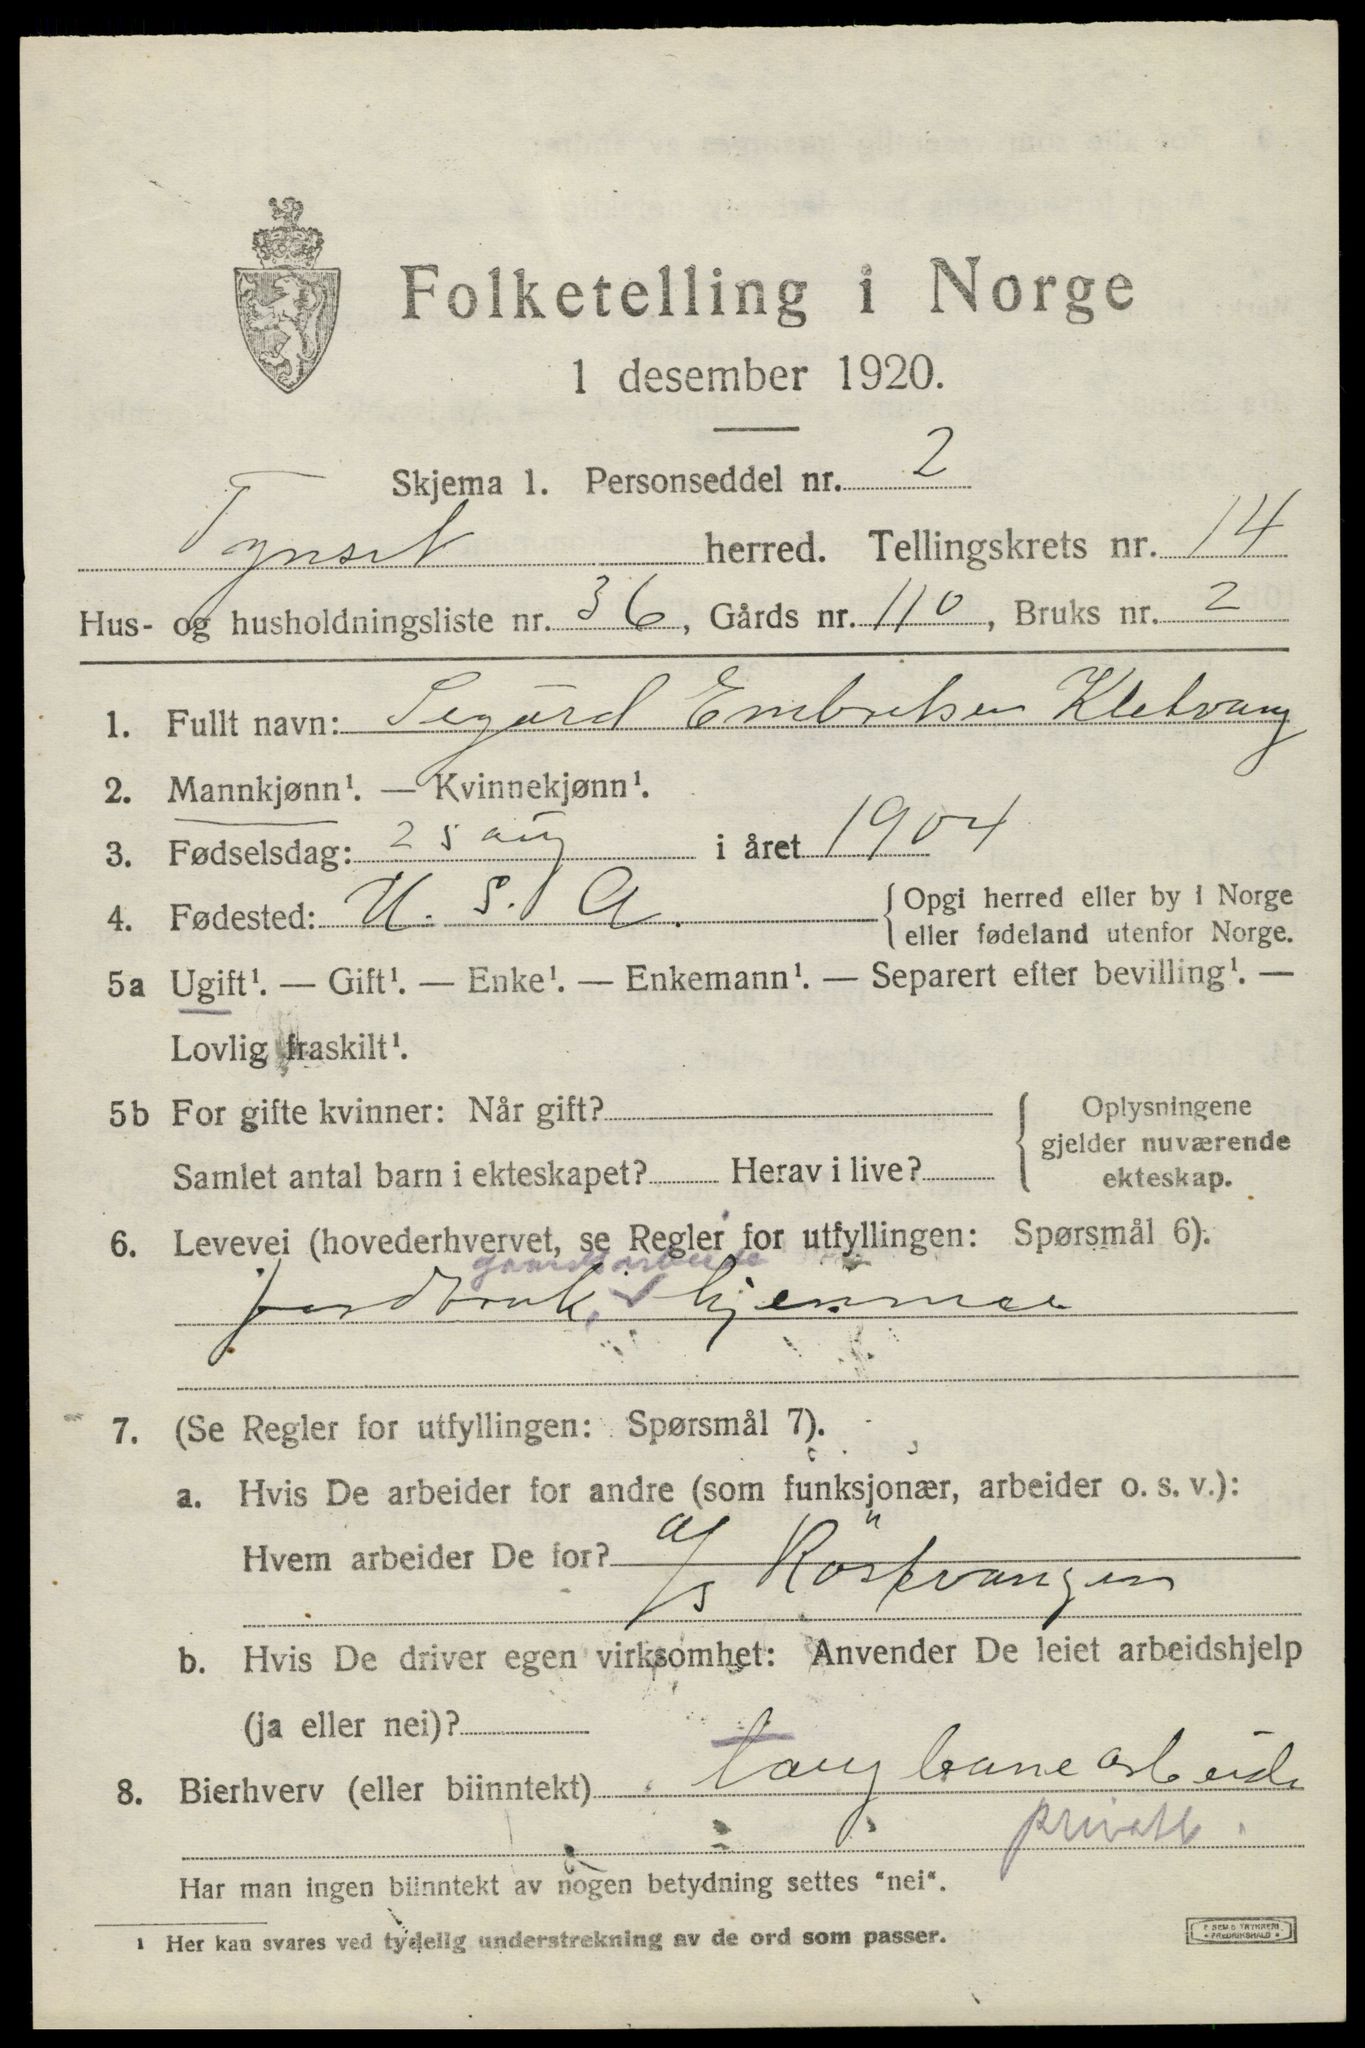 Folketelling i Norge
1 desember 1920.
Skjema 1. Personseddel nr. 2
Tynset herred. Tellingskrets nr. 14
Hus- og husholdningsliste nr. 36, Gårds nr. 110, Bruks nr. 2
1. Fullt navn: Sigurd Embretsen Kletvang
2. Mannkjønn¹. — Kvinnekjønn¹.
3. Fødselsdag: 25 aug i året 1904
4. Fødested: U. S. A. {Opgi herred eller by i Norge
eller fødeland utenfor Norge.
5a Ugift¹. — Gift¹. — Enke¹. — Enkemann¹. — Separert efter bevilling¹. —
Lovlig fraskilt¹.
5b For gifte kvinner: Når gift? Oplysningene
gjelder nuværende
Samlet antal barn i ekteskapet? Herav i live? ekteskap.
6. Levevei (hovederhvervet, se Regler for utfyllingen: Spørsmål 6).
gaardsarbeide
jordbruk, hjemme
7. (Se Regler for utfyllingen: Spørsmål 7).
a. Hvis De arbeider for andre (som funksjonær, arbeider o. s. v.):
Hvem arbeider De for? A/S Röstvangen
b. Hvis De driver egen virksomhet: Anvender De leiet arbeidshjelp
(ja eller nei)?
8. Bierhverv (eller biinntekt) taugbanearbeide
private.
Har man ingen biinntekt av nogen betydning settes "nei".
¹ Her kan svares ved tydelig understrekning av de ord som passer.
E. SEM'S TRYKKERI
FREDRIKSHALD